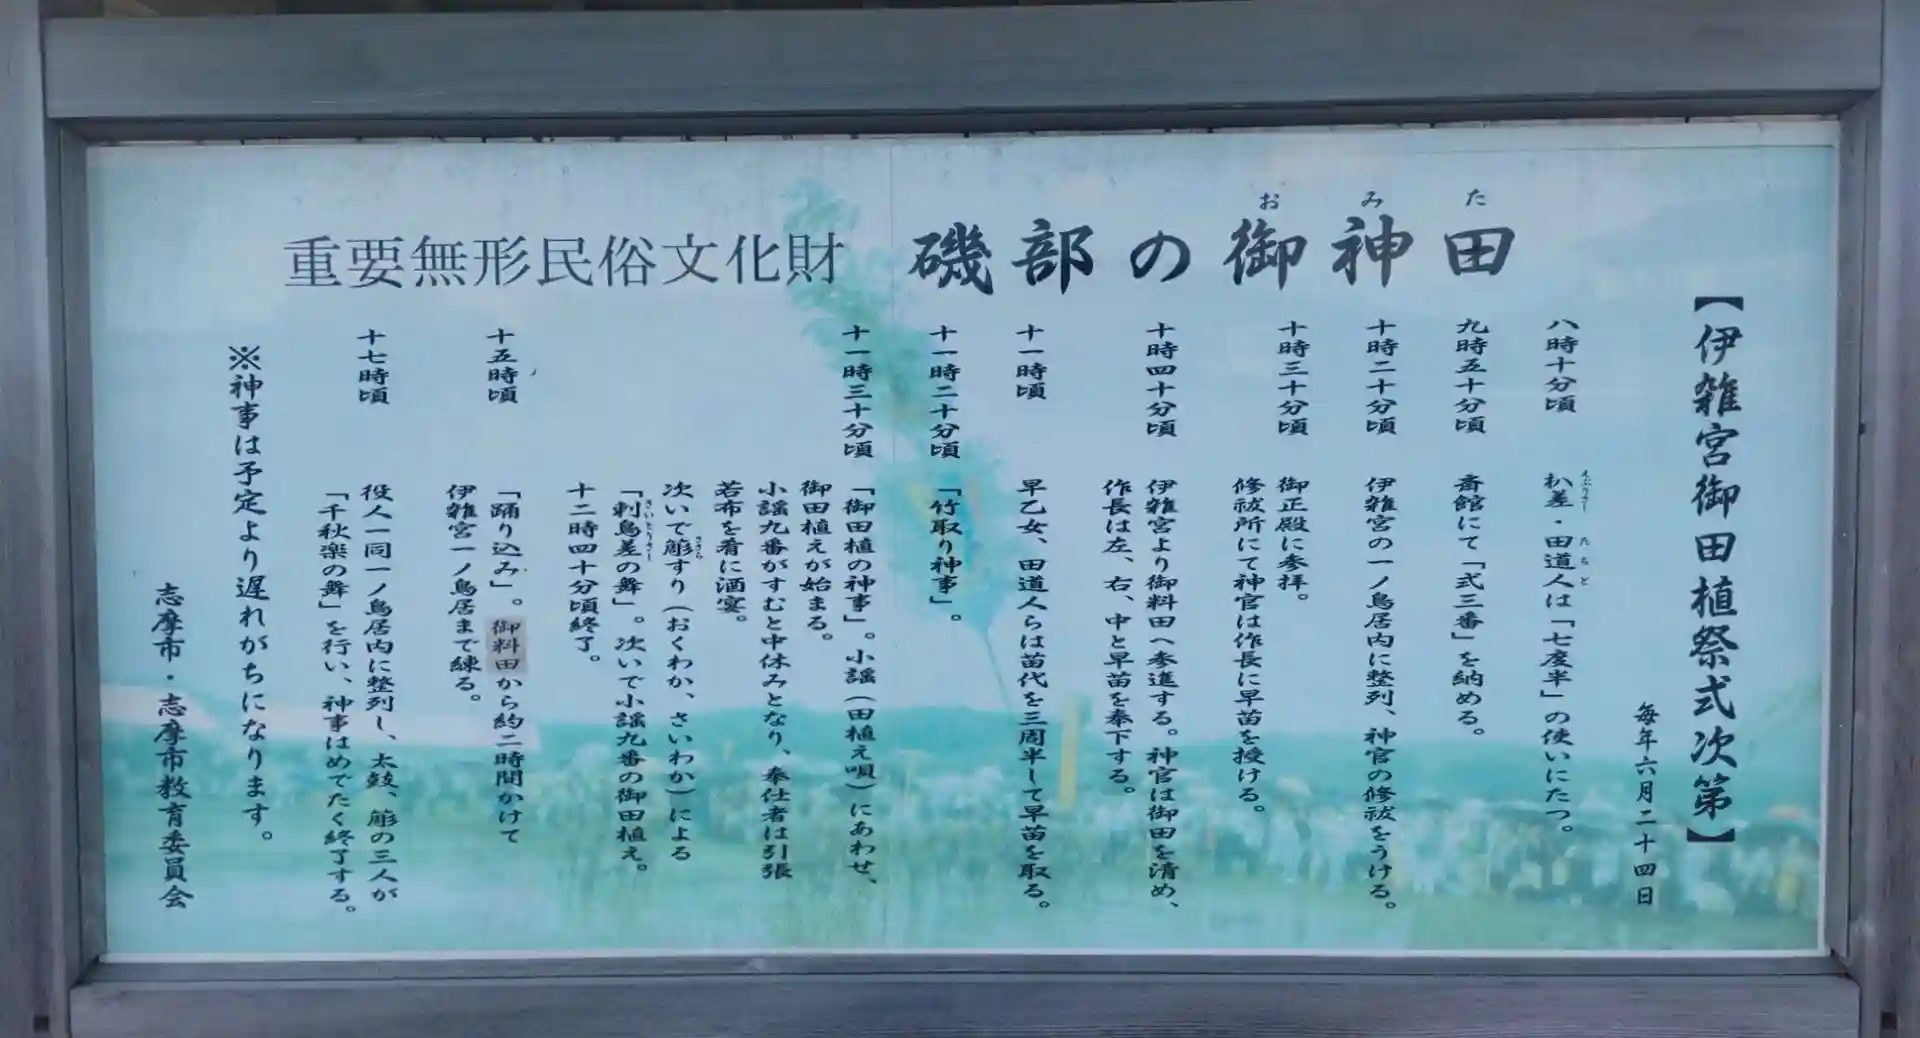 重要無形民俗文化財 磯部の御神田
おみた
【伊雑宮御田植祭式次第】
毎年六月二十四日
八時十分頃 朳差・田道人は「七度半」の使いにたつ。
えぶりさし たちど
九時五十分頃 斎館にて「式三番」を納める。
十時二十分頃 伊雑宮の一ノ鳥居内に整列、神官の修祓をうける。
十時三十分頃 御正殿に参拝。
修祓所にて神官は作長に早苗を授ける。
十時四十分頃 伊雑宮より御料田へ参進する。神官は御田を清め、
作長は左、右、中と早苗を奉下する。
十一時頃 早乙女、田道人らは苗代を三周半して早苗を取る。
十一時二十分頃 「竹取り神事」。
十一時三十分頃 「御田植の神事」。小謡（田植え唄）にあわせ、
御田植えが始まる。
小謡九番がすむと中休みとなり、奉仕者は引張
若布を肴に酒宴。
次いで簓すり（おくわか、さいわか）による
ささら
「刺鳥差の舞」。次いで小謡九番の御田植え。
さいとりさし
十二時四十分頃終了。
十五時頃 「踊り込み」。御料田から約二時間かけて
伊雑宮一ノ鳥居まで練る。
十七時頃 役人一同一ノ鳥居内に整列し、太鼓、簓の三人が
「千秋楽の舞」を行い、神事はめでたく終了する。
※神事は予定より遅れがちになります。
志摩市・志摩市教育委員会